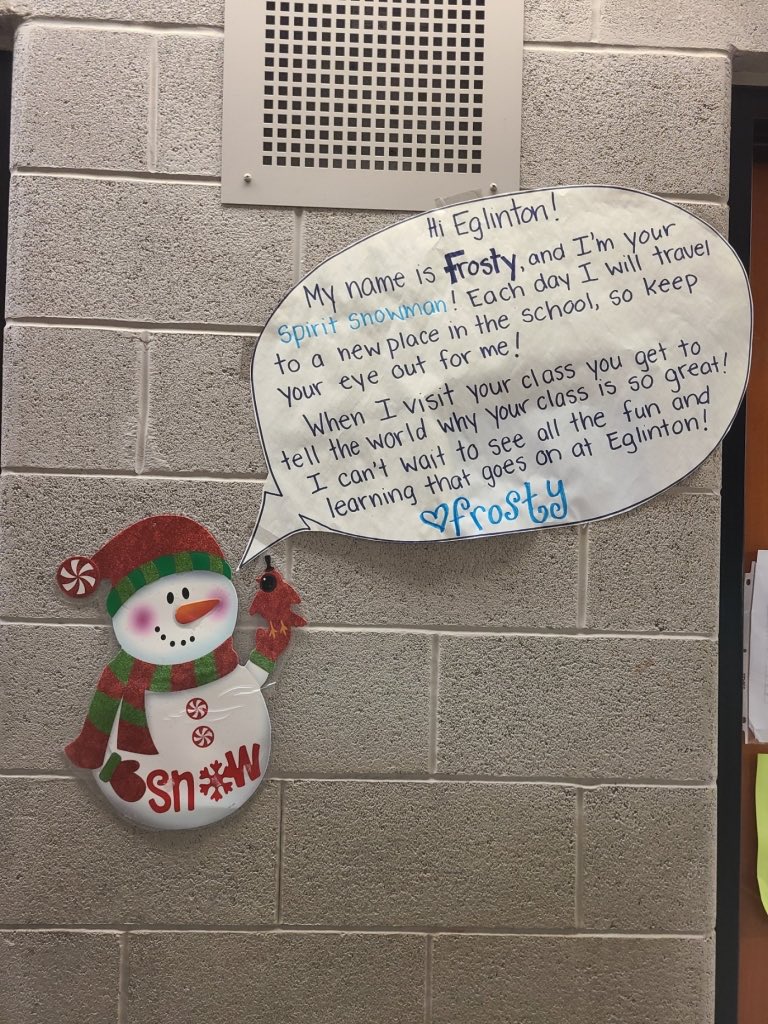 Hi Eglinton!
My name is Frosty, and I'm your
Spirit Snowman! Each day I will travel
to a new place in the school, so keep
your eye out for me!
When I visit your class you get to
tell the world why your class is so great!
I can't wait to see all the fun and
learning that goes on at Eglinton!
♡frosty
SNOW